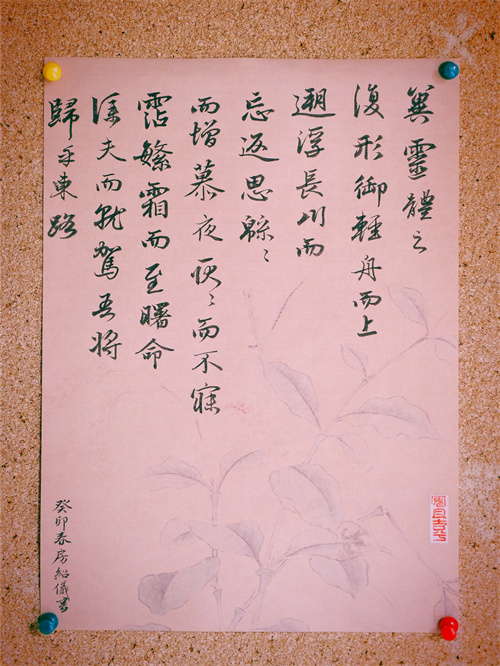 冀靈體之
復形御輕舟而上
遡浮長川而
忘返思緜〻
而增慕夜耿〻而不寐
霑繁霜而至曙命
僕夫而就駕吾將
歸乎東路
癸卯春房紹儀書